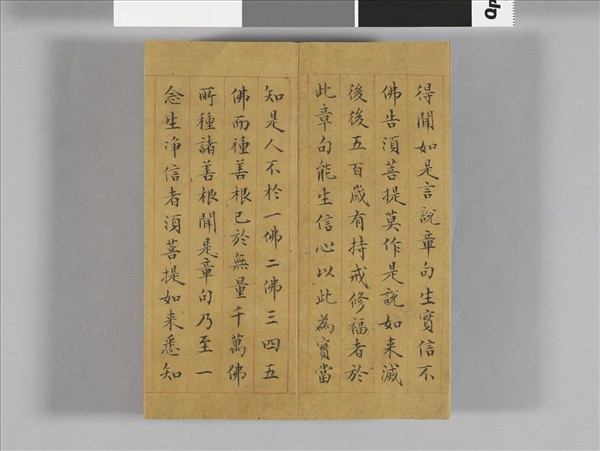 得聞如是言說章句生實信不
佛告須菩提莫作是說如来滅
後後五百歲有持戒修福者於
此章句能生信心以此為實當
知是人不於一佛二佛三四五
佛而種善根已於無量千萬佛
所種諸善根聞是章句乃至一
念生淨信者須菩提如来悉知
Op